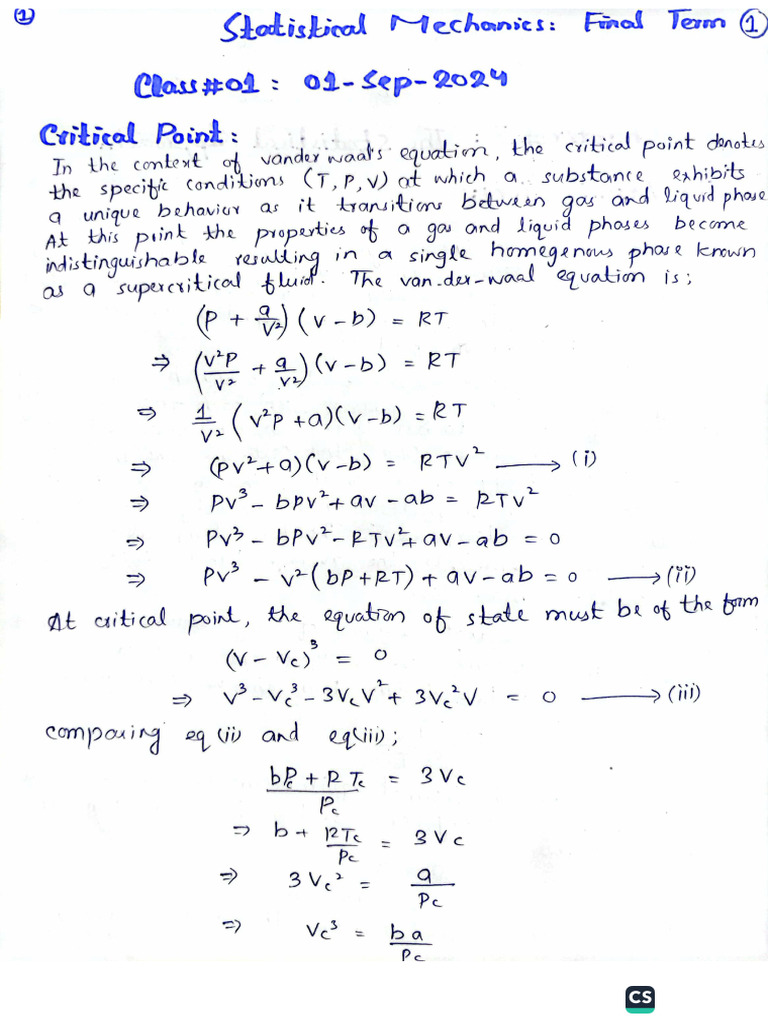 ① Statistical Mechanics: Final Term ①
Class#01: 01-Sep-2024
Critical Point:
In the context of vander waal's equation, the critical point denotes
the specific conditions (T, P, V) at which a substance exhibits
a unique behavior as it transitions between gas and liquid phase
At this point the properties of a gas and liquid phases become
indistinguishable resulting in a single homegenous phase known
as a supercritical fluid. The van-der-waal equation is;
(P + a/V²)(V - b) = RT
⇒ (V²P/V² + a/V²)(V - b) = RT
⇒ 1/V² (V²P + a)(V - b) = RT
⇒ (PV² + a)(V - b) = RTV² ⟶ (i)
⇒ PV³ - bPV² + aV - ab = RTV²
⇒ PV³ - bPV² - RTV² + aV - ab = 0
⇒ PV³ - V²(bP + RT) + aV - ab = 0 ⟶ (ii)
At critical point, the equation of state must be of the form
(V - Vc)³ = 0
⇒ V³ - Vc³ - 3VcV² + 3Vc²V = 0 ⟶ (iii)
comparing eq(ii) and eq(iii);
bPc + RTc/Pc = 3Vc
⇒ b + RTc/Pc = 3Vc
⇒ 3Vc² = a/Pc
⇒ Vc³ = ba/Pc
CS